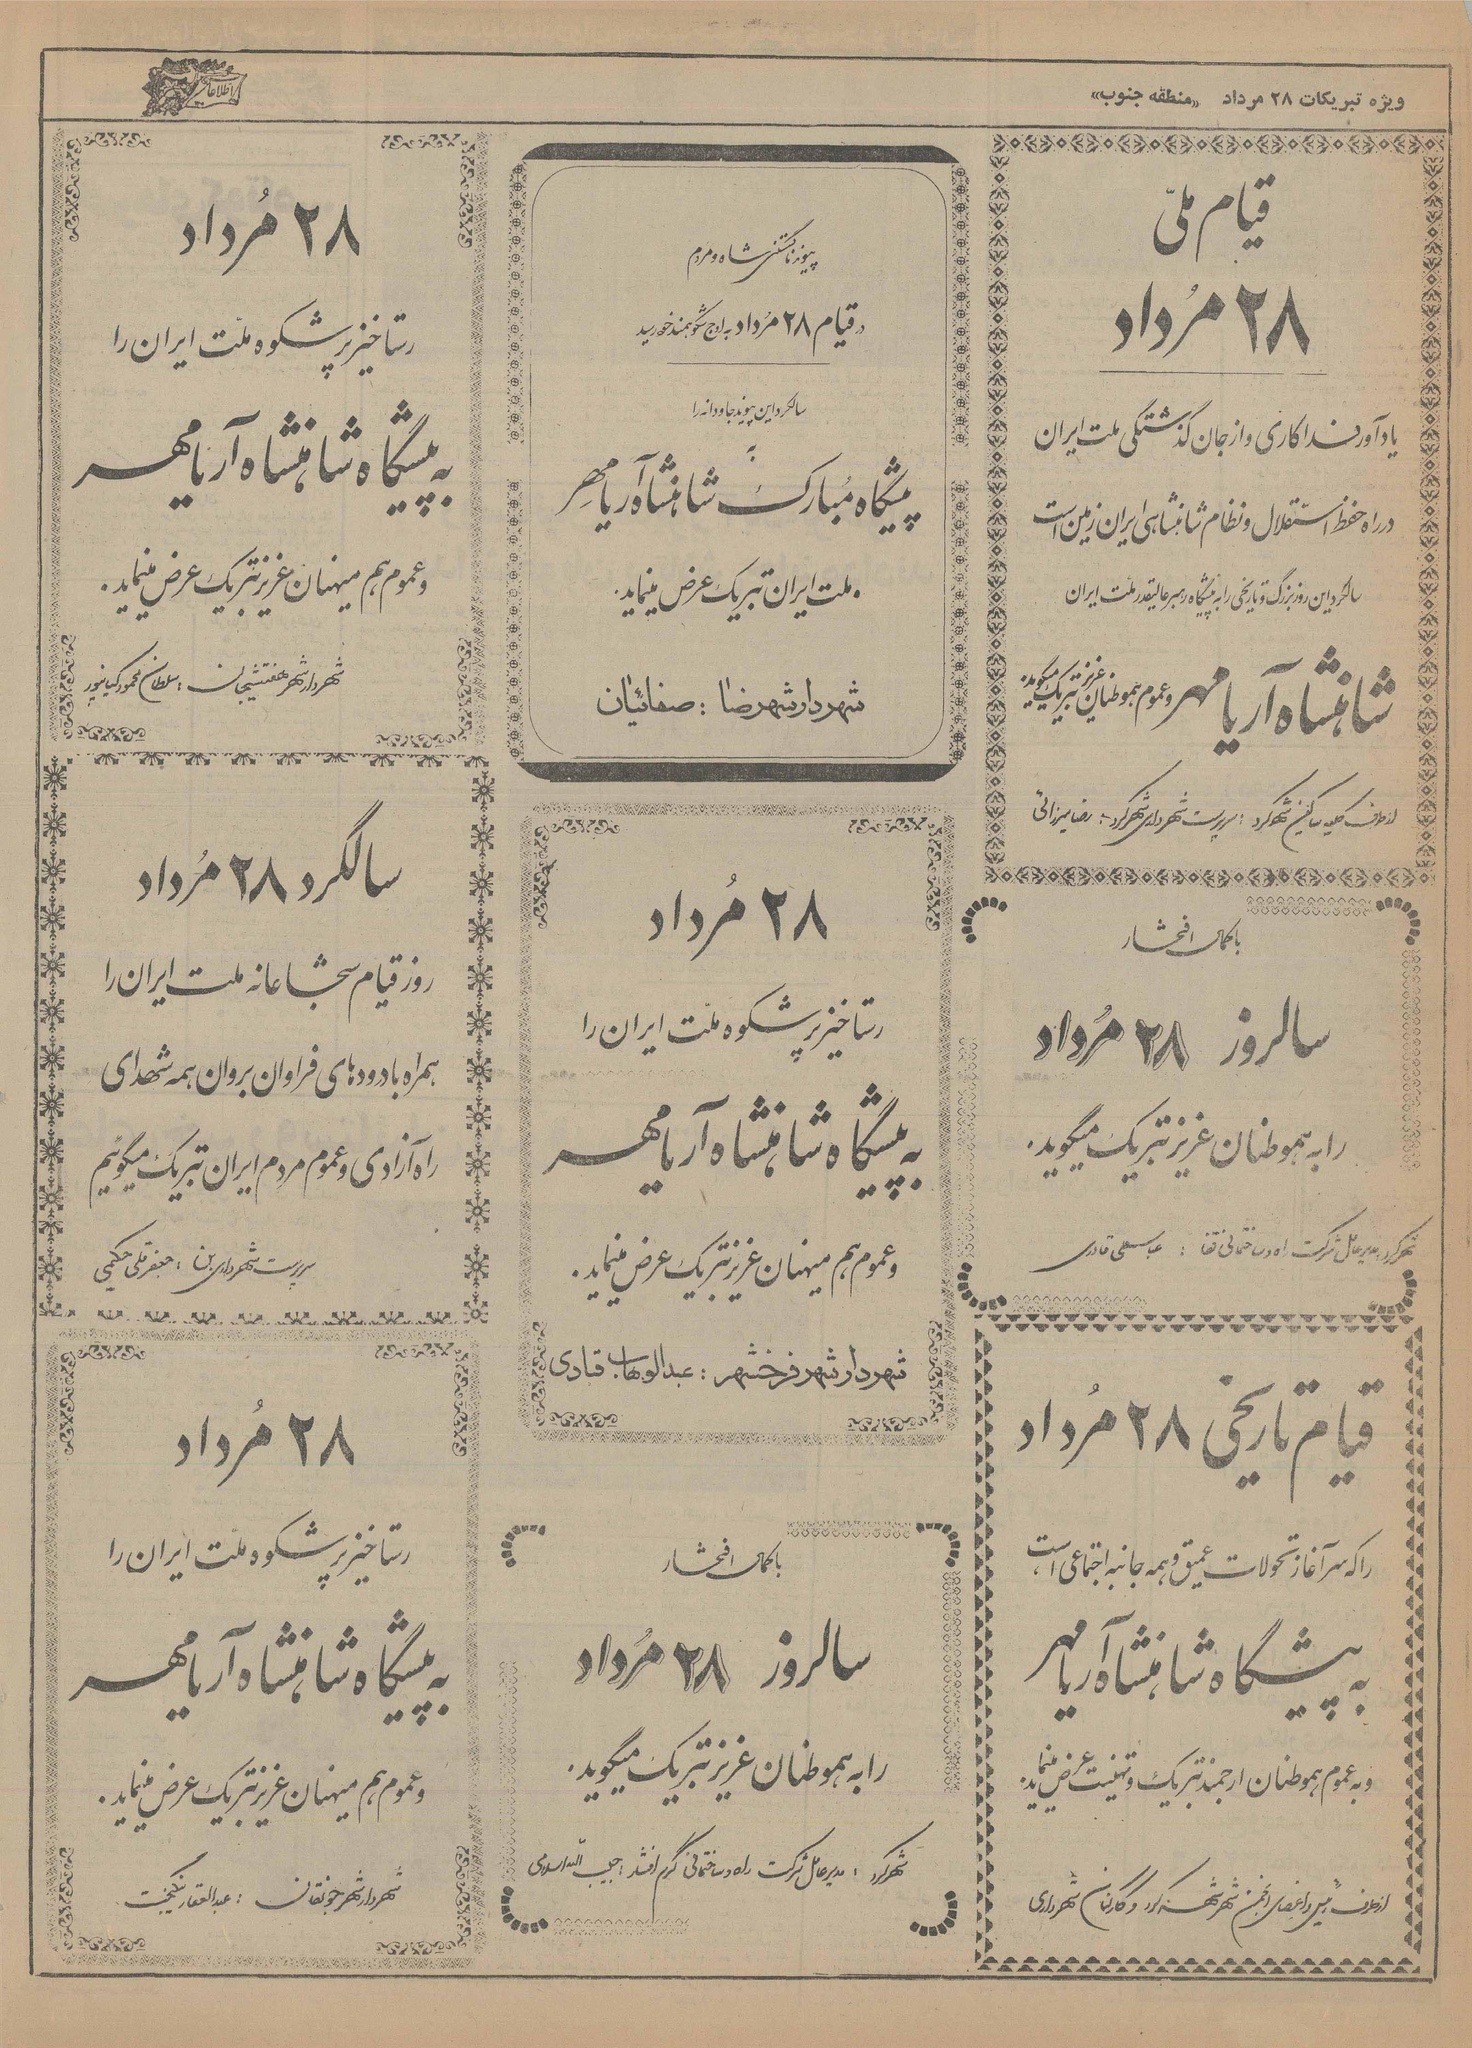 ویژه تبریکات ۲۸ مرداد «منطقه جنوب»
اطلاعات
قیام ملّی
۲۸ مُرداد
یادآور فداکاری و از جان گذشتگی ملت ایران
در راه حفظ استقلال و نظام شاهنشاهی ایران زمین است
سالگرد این روز بزرگ و تاریخی را به پیشگاه رهبر عالیقدر ملت ایران
شاهنشاه آریامهر و عموم هموطنان عزیز تبریک میگوید.
از طرف کلیه ساکنین شهرکرد : سرپرست شهرداری شهرکرد - رضا میرزائی
با کمال افتخار
سالروز ۲۸ مُرداد
را به هموطنان عزیز تبریک میگوید.
شهرکرد : مدیر عامل شرکت راه و ساختمانی : عباسعلی قادری
قیام تاریخی ۲۸ مُرداد
را که سرآغاز تحولات عمیق و همه جانبه اجتماعی است،
به پیشگاه شاهنشاه آریامهر
و به عموم هموطنان ارجمند تبریک و تهنیت عرض مینماید.
از طرف رئیس و اعضای انجمن شهر شهرکرد و کارکنان شهرداری
پیوند ناگسستنی شاه و مردم
در قیام ۲۸ مُرداد به اوج شکوهمند خود رسید
سالگرد این پیوند جاودانه را
به
پیشگاه مُبارک شاهنشاه آریامهر
و ملت ایران تبریک عرض مینماید.
شهردار شهرضا : صفائیان
۲۸ مُرداد
رستاخیز پرشکوه ملّت ایران را
به پیشگاه شاهنشاه آریامهر
و عموم هم میهنان عزیز تبریک عرض مینماید.
شهردار شهر فرخشهر : عبدالوهاب قادی
با کمال افتخار
سالروز ۲۸ مُرداد
را به هموطنان عزیز تبریک میگوید.
شهرکرد : مدیر عامل شرکت راه و ساختمانی : حبیب الله اسلامی
۲۸ مُرداد
رستاخیز پرشکوه ملّت ایران را
به پیشگاه شاهنشاه آریامهر
و عموم هم میهنان عزیز تبریک عرض مینماید.
شهردار شهر هفشیجان : سلطان محمود کیانپور
سالگرد ۲۸ مُرداد
روز قیام شجاعانه ملت ایران را
همراه با درودهای فراوان بروان همه شهدای
راه آزادی و عموم مردم ایران تبریک میگوئیم
سرپرست شهرداری بن : جعفرقلی حکیمی
۲۸ مُرداد
رستاخیز پرشکوه ملّت ایران را
به پیشگاه شاهنشاه آریامهر
و عموم هم میهنان عزیز تبریک عرض مینماید.
شهردار شهر جونقان : عبدالغفار نیکبخت